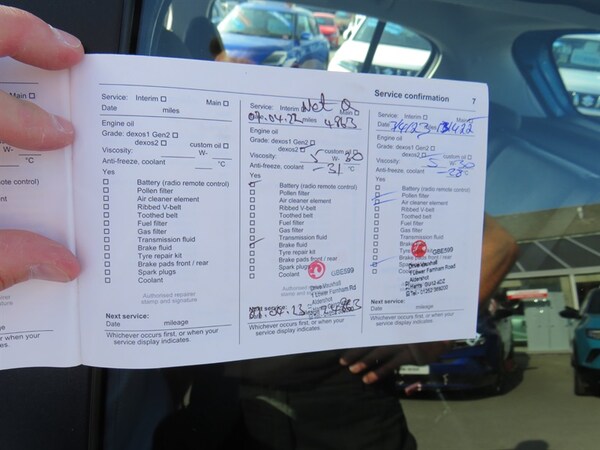 Service confirmation 7
Main
°C
remote control)
element
fluid
front / rear
first, or when your
es.
Service: Interim Main
Date miles
Engine oil
Grade: dexos1 Gen2
dexos2 custom oil
Viscosity: W-
Anti-freeze, coolant °C
Yes
Battery (radio remote control)
Pollen filter
Air cleaner element
Ribbed V-belt
Toothed belt
Fuel filter
Gas filter
Transmission fluid
Brake fluid
Tyre repair kit
Brake pads front / rear
Spark plugs
Coolant
Authorised repairer
stamp and signature
Next service:
Date mileage
Whichever occurs first, or when your
service display indicates.
Service: Interim Main
miles 4963
Engine oil
Grade: dexos1 Gen2
dexos2 custom oil
Viscosity: W-
Anti-freeze, coolant -31 °C
Yes
Battery (radio remote control)
Pollen filter
Air cleaner element
Ribbed V-belt
Toothed belt
Fuel filter
Gas filter
Transmission fluid
Brake fluid
Tyre repair kit
Brake pads front / rear
Spark plugs
Coolant
GBE999
Drive Vauxhall
1 Lower Farnham Rd
Aldershot
Next service:
Whichever occurs first, or when your
service display indicates.
Service: Interim Main
Date
Engine oil
Grade: dexos1 Gen2
dexos2 custom oil
Viscosity: 5 W- 30
Anti-freeze, coolant -28 °C
Yes
Battery (radio remote control)
Pollen filter
Air cleaner element
Ribbed V-belt
Toothed belt
Fuel filter
Gas filter
Transmission fluid
Brake fluid
Tyre
Brake pads front / rear
Spark plugs
Coolant
GBE999
Drive Vauxhall
1 Lower Farnham Road
Aldershot
Next service:
Date mileage
Whichever occurs first, or when your
service display indicates.